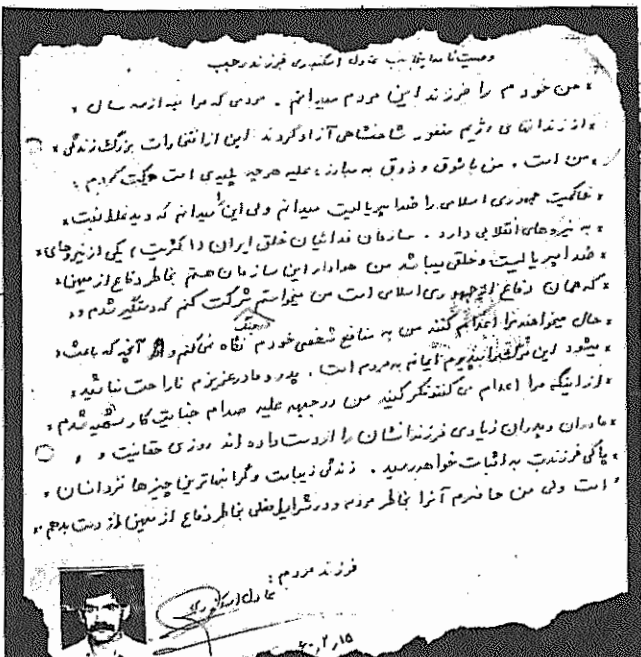 وصیت نامه اینجانب عادل اسکندری فرزند رجب
من خودم را فرزند این مردم میدانم . مردمی که مرا بعد از سه سال
از زندانهای رژیم منفور شاهنشاهی آزاد کردند این از افتخارات بزرگ زندگی
من است . من با شوق و ذوق به مبارزه علیه هرچه پلیدی است حرکت کردم .
حاکمیت جمهوری اسلامی را ضد امپریالیست میدانم ولی این را میدانم که دید غلط نسبت
به نیروهای انقلابی دارد . سازمان فدائیان خلق ایران (اکثریت) یکی از نیروهای
ضد امپریالیست و خلقی میباشد من هوادار این سازمان هستم بخاطر دفاع از میهن
که همان دفاع از جمهوری اسلامی است من میخواستم در جنگ شرکت کنم که دستگیر شدم و
حال میخواهند مرا اعدام کنند من به منافع شخصی خودم نگاه نمی‌کنم و آنچه که باعث
میشود این مرگ را بپذیرم ایمانم به مردم است . پدر و مادر عزیزم ناراحت نباشید
از اینکه مرا اعدام می کنند فکر کنید من در جبهه علیه صدام جنایت کار شهید شدم
مادران و پدران زیادی فرزندانشان را از دست داده اند روزی حقانیت و
پاکی فرزندت به اثبات خواهد رسید . زندگی زیباست و گرانبهاترین چیزها نزد انسان
است ولی من حاضرم آنرا بخاطر مردم و در شرایط فعلی بخاطر دفاع از میهن از دست بدهم
فرزند مردم :
عادل اسکندری
۶۰٫۲٫۱۵